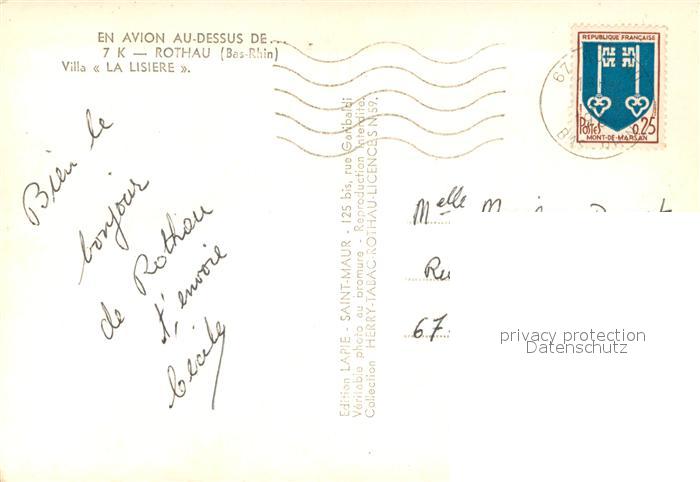 EN AVION AU-DESSUS DE...
7 K — ROTHAU (Bas-Rhin)
Villa « LA LISIERE ».
Bien le
bonjour
de Rothau
t'envoie
Cécile
Edition LAPIE - SAINT-MAUR - 125 bis, rue Garibaldi
Véritable photo au bromure - Reproduction interdite.
Collection HERRY-TABAC-ROTHAU-LICENCES N 59.
REPUBLIQUE FRANÇAISE
Postes 0,25
MONT-DE-MARSAN
67
Melle
Ru
67
privacy protection
Datenschutz